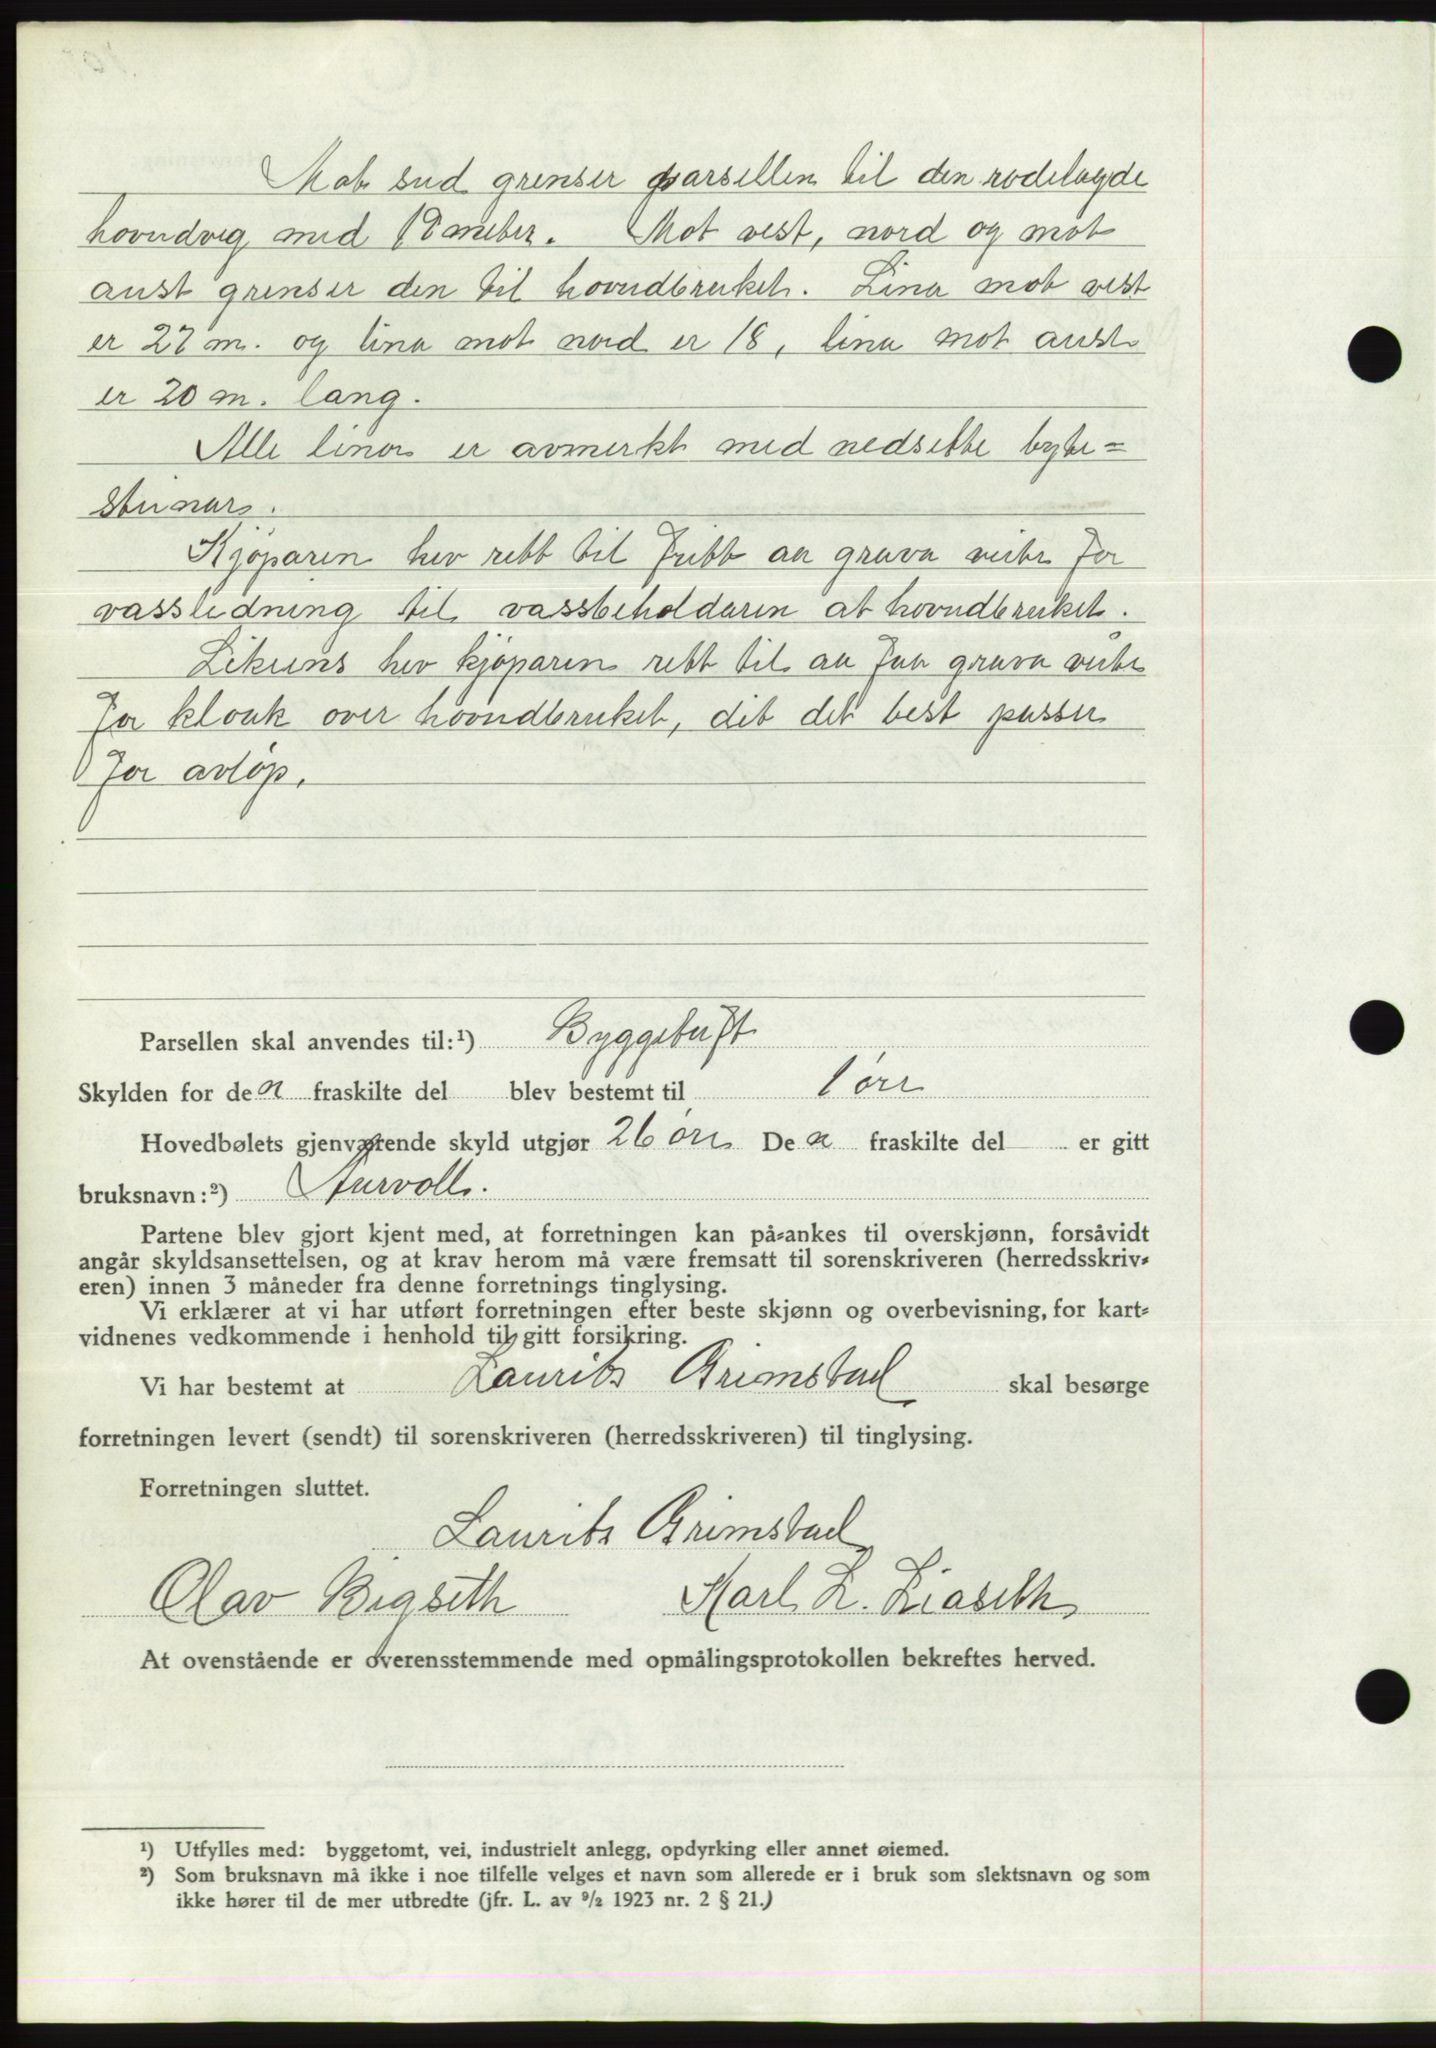 Mot sud grenser parsellen til den rodelagde
hovudveg med 18 meter. Mot vest, nord og mot
aust grenser den til hovudbruket. Lina mot vest
er 22 m. og lina mot nord er 18, lina mot aust
er 20 m. lang.
Alle linor er avmerkt med nedsette byte=
steinar.
Kjöparen hev rett til fritt aa grava veite for
vassledning til vassbeholdaren at hovudbruket.
Likeins hev kjöparen rett til aa faa grava veite
for kloak over hovudbruket, dit det best passer
for avlöp.
Parsellen skal anvendes til:¹) Byggetuft
Skylden for den fraskilte del blev bestemt til 1 öre
Hovedbølets gjenværende skyld utgjør 26 öre Den fraskilte del er gitt
bruksnavn:²) Aurvoll.
Partene blev gjort kjent med, at forretningen kan på-ankes til overskjønn, forsåvidt
angår skyldsansettelsen, og at krav herom må være fremsatt til sorenskriveren (herredsskriv-
eren) innen 3 måneder fra denne forretnings tinglysing.
Vi erklærer at vi har utført forretningen efter beste skjønn og overbevisning, for kart-
vidnenes vedkommende i henhold til gitt forsikring.
Vi har bestemt at Laurits Grimstad skal besørge
forretningen levert (sendt) til sorenskriveren (herredsskriveren) til tinglysing.
Forretningen sluttet.
Laurits Grimstad
Olav Bigseth Karl L. Liaseth
At ovenstående er overensstemmende med opmålingsprotokollen bekreftes herved.
¹) Utfylles med: byggetomt, vei, industrielt anlegg, opdyrking eller annet øiemed.
²) Som bruksnavn må ikke i noe tilfelle velges et navn som allerede er i bruk som slektsnavn og som
ikke hører til de mer utbredte (jfr. L. av ⁹/₂ 1923 nr. 2 § 21.)